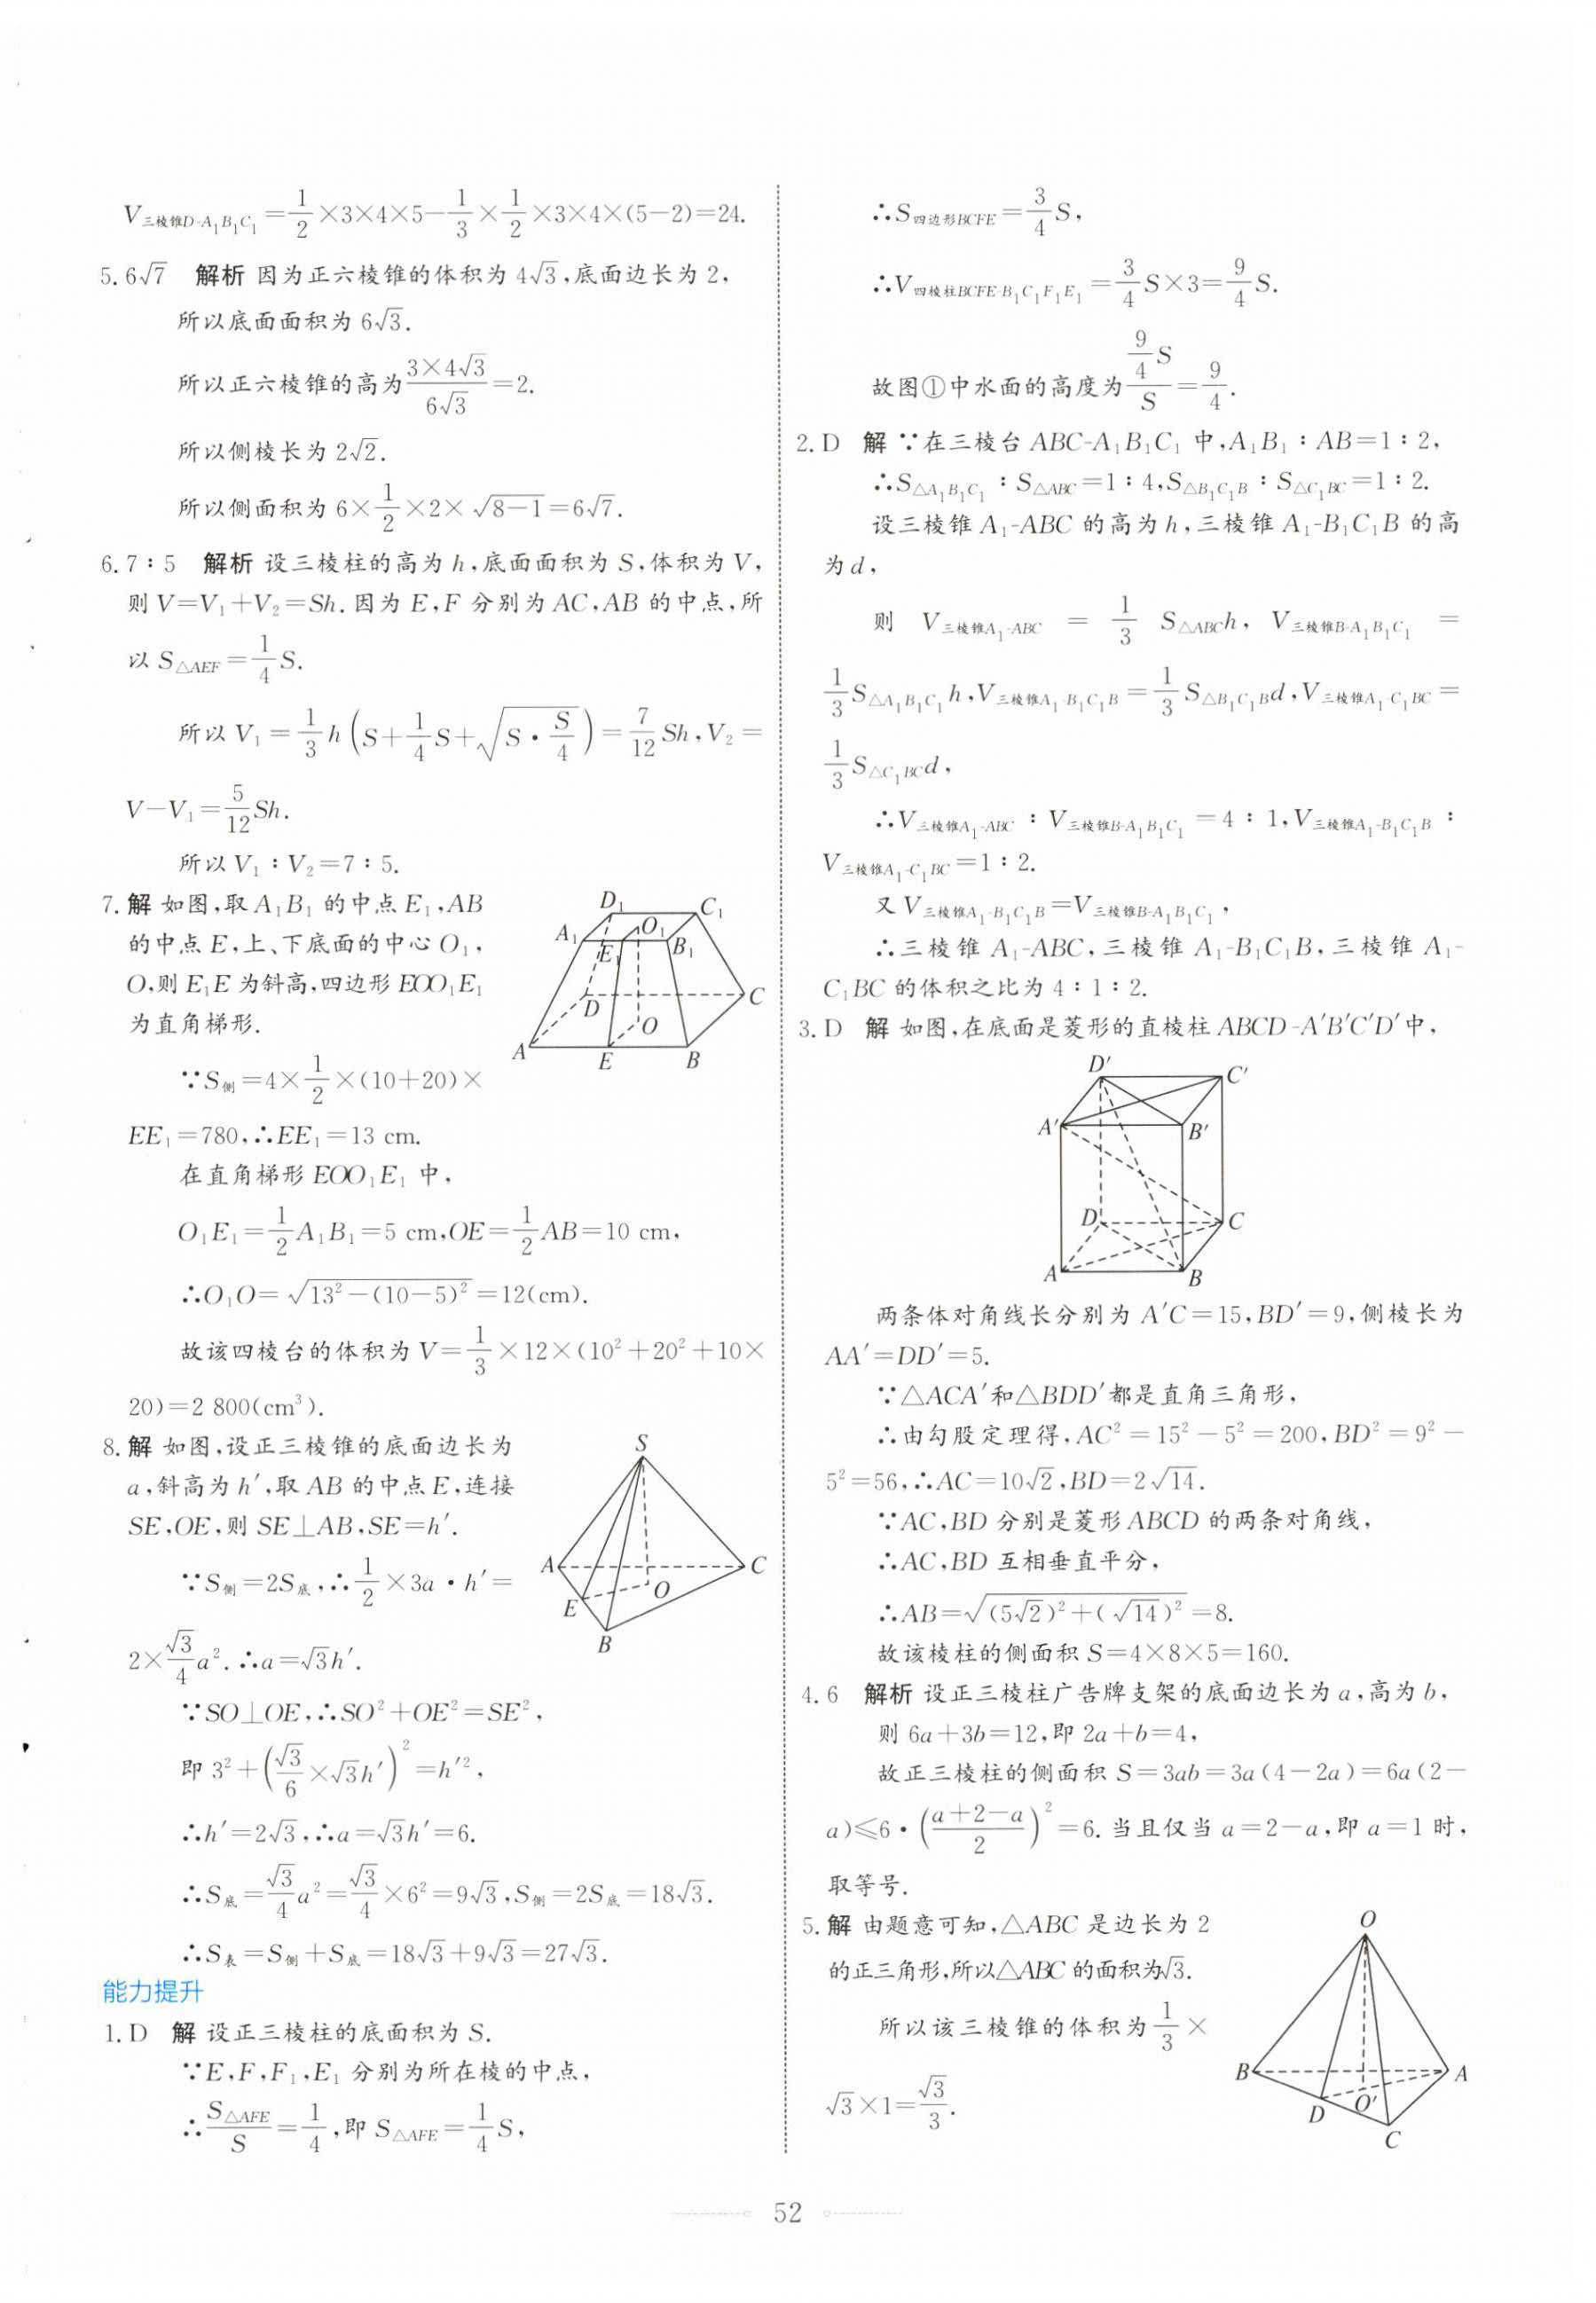 V三棱锥D-A₁B₁C₁=1/2×3×4×5−1/3×1/2×3×4×(5−2)=24.
5. 6√7 解析 因为正六棱锥的体积为 4√3,底面边长为 2,
所以底面面积为 6√3.
所以正六棱锥的高为(3×4√3)/(6√3)=2.
所以侧棱长为 2√2.
所以侧面积为 6×1/2×2×√(8−1)=6√7.
6. 7∶5 解析 设三棱柱的高为 h,底面面积为 S,体积为 V,
则 V=V₁+V₂=Sh.因为 E,F 分别为 AC,AB 的中点,所
以 S△AEF=1/4 S.
所以 V₁=1/3 h(S+1/4 S+√(S·S/4))=7/12 Sh,V₂=
V−V₁=5/12 Sh.
所以 V₁∶V₂=7∶5.
7. 解 如图,取 A₁B₁ 的中点 E₁,AB
的中点 E,上、下底面的中心 O₁,
O,则 E₁E 为斜高,四边形 EOO₁E₁
为直角梯形.
D₁ C₁
A₁ O₁
E₁ B₁
D C
O
A E B
∵S侧=4×1/2×(10+20)×
EE₁=780,∴EE₁=13 cm.
在直角梯形 EOO₁E₁ 中,
O₁E₁=1/2 A₁B₁=5 cm,OE=1/2 AB=10 cm,
∴O₁O=√(13²−(10−5)²)=12(cm).
故该四棱台的体积为 V=1/3×12×(10²+20²+10×
20)=2 800(cm³).
8. 解 如图,设正三棱锥的底面边长为
a,斜高为 h′,取 AB 的中点 E,连接
SE,OE,则 SE⊥AB,SE=h′.
S
A C
E O
B
∵S侧=2S底,∴1/2×3a·h′=
2×√3/4 a².∴a=√3h′.
∵SO⊥OE,∴SO²+OE²=SE²,
即 3²+(√3/6×√3h′)²=h′²,
∴h′=2√3,∴a=√3h′=6.
∴S底=√3/4 a²=√3/4×6²=9√3,S侧=2S底=18√3.
∴S表=S侧+S底=18√3+9√3=27√3.
能力提升
1. D 解 设正三棱柱的底面积为 S.
∵E,F,F₁,E₁ 分别为所在棱的中点,
∴S△AFE/S=1/4,即 S△AFE=1/4 S,
∴S四边形BCFE=3/4 S,
∴V四棱柱BCFE-B₁C₁F₁E₁=3/4 S×3=9/4 S.
故图①中水面的高度为(9/4 S)/S=9/4.
2. D 解 ∵在三棱台 ABC-A₁B₁C₁ 中,A₁B₁∶AB=1∶2,
∴S△A₁B₁C₁∶S△ABC=1∶4,S△B₁C₁B∶S△C₁BC=1∶2.
设三棱锥 A₁-ABC 的高为 h,三棱锥 A₁-B₁C₁B 的高
为 d,
则 V三棱锥A₁-ABC = 1/3 S△ABC h, V三棱锥B-A₁B₁C₁ =
1/3 S△A₁B₁C₁ h,V三棱锥A₁-B₁C₁B=1/3 S△B₁C₁B d,V三棱锥A₁-C₁BC=
1/3 S△C₁BC d,
∴V三棱锥A₁-ABC∶V三棱锥B-A₁B₁C₁=4∶1,V三棱锥A₁-B₁C₁B∶
V三棱锥A₁-C₁BC=1∶2.
又 V三棱锥A₁-B₁C₁B=V三棱锥B-A₁B₁C₁,
∴三棱锥 A₁-ABC,三棱锥 A₁-B₁C₁B,三棱锥 A₁-
C₁BC 的体积之比为 4∶1∶2.
3. D 解 如图,在底面是菱形的直棱柱 ABCD-A′B′C′D′中,
D′ C′
A′ B′
D C
A B
两条体对角线长分别为 A′C=15,BD′=9,侧棱长为
AA′=DD′=5.
∵△ACA′和△BDD′都是直角三角形,
∴由勾股定理得,AC²=15²−5²=200,BD²=9²−
5²=56,∴AC=10√2,BD=2√14.
∵AC,BD 分别是菱形 ABCD 的两条对角线,
∴AC,BD 互相垂直平分,
∴AB=√((5√2)²+(√14)²)=8.
故该棱柱的侧面积 S=4×8×5=160.
4. 6 解析 设正三棱柱广告牌支架的底面边长为 a,高为 b,
则 6a+3b=12,即 2a+b=4,
故正三棱柱的侧面积 S=3ab=3a(4−2a)=6a(2−
a)≤6·((a+2−a)/2)²=6.当且仅当 a=2−a,即 a=1 时,
取等号.
5. 解 由题意可知,△ABC 是边长为 2
的正三角形,所以△ABC 的面积为√3.
所以该三棱锥的体积为 1/3×
√3×1=√3/3.
O
B A
D O′
C
52